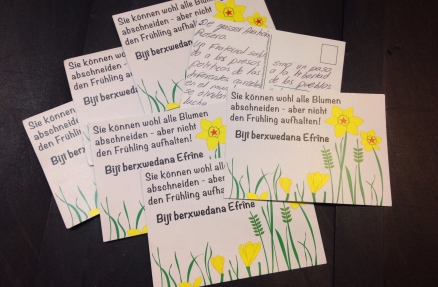 Sie können wohl alle Blumen
abschneiden - aber nicht
den Frühling aufhalten!
Bijî berxwedana Efrîne
Sie können
abschneiden
den Frühling
Bijî
Sie können wohl alle Blumen
abschneiden
den Frühlin
Bijî berxwe
Sie können wohl alle Blumen
abschneiden - aber nicht
den Frühling aufhalten!
Bijî berxwedana
Sie können wohl alle Blumen
abschneiden - aber nicht
den Frühling aufhalten!
Bijî berxwedana Efrîne
Sie können wohl alle
abschneiden - aber
den Frühling aufha
Bijî berxwedana Efrîne
De
Un fraternal
a los presos
politicos de las
lucha
a la libertad
de los pueblos